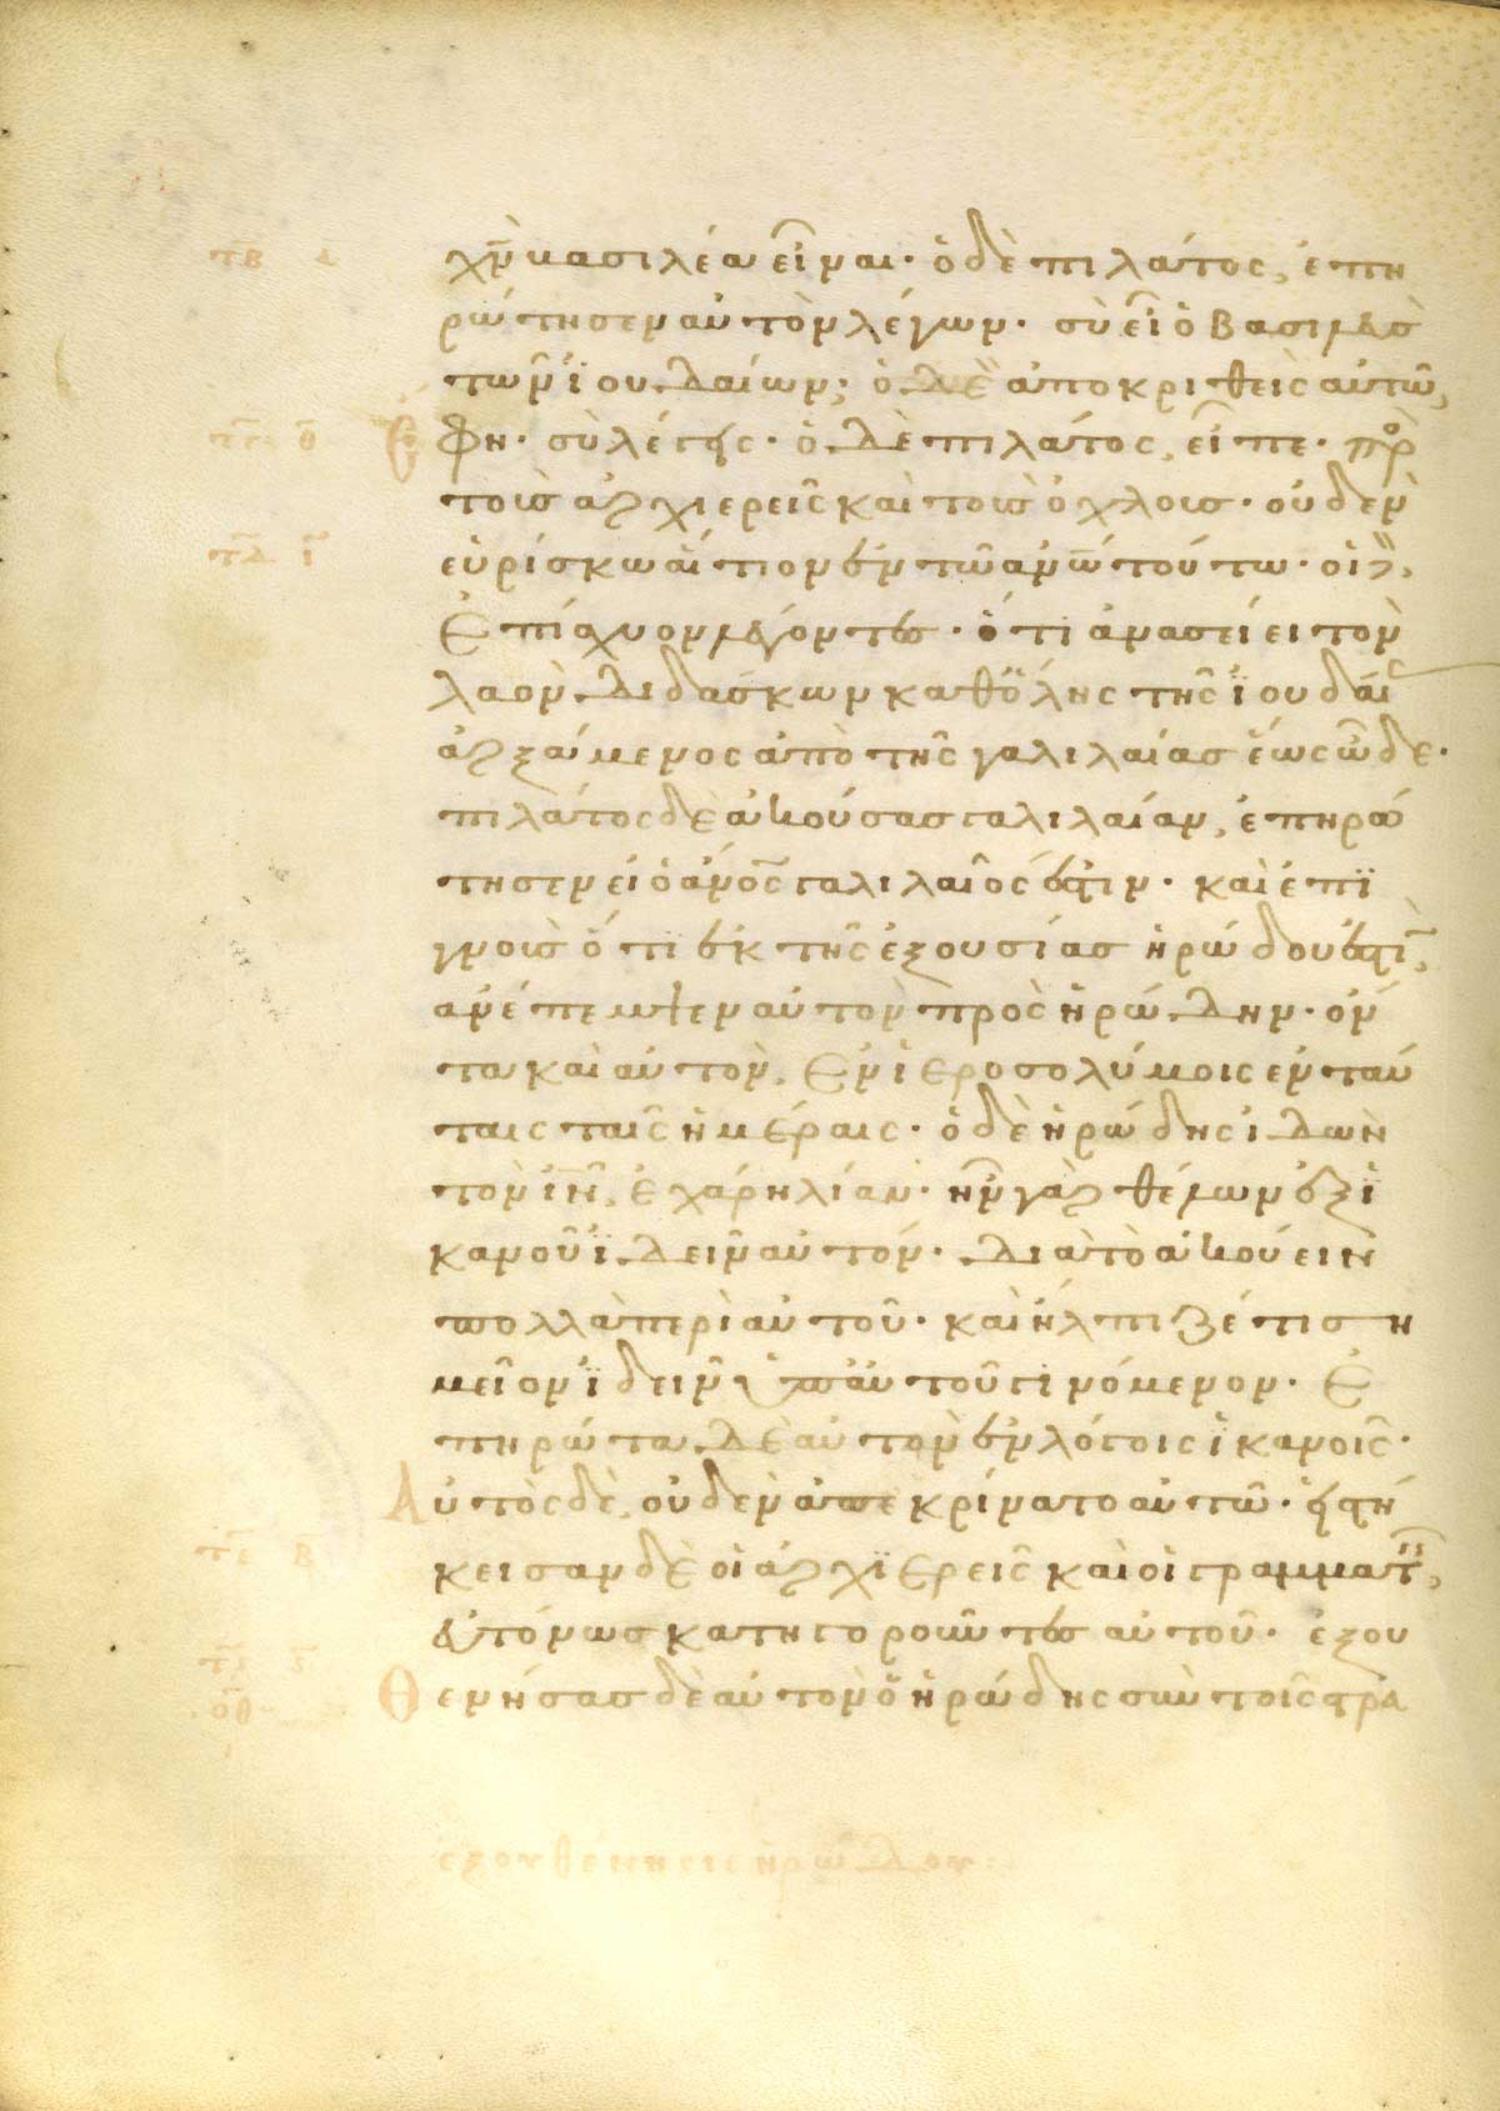 χ̅ν̅ βασιλέα εἶναι· ὁ δὲ πιλάτος, ἐπη
ρώτησεν αὐτὸν λέγων· σὺ εἶ ὁ βασιλεὺσ
τῶν ἰουδαίων; ὁ δὲ ἀποκριθεὶς αὐτῶ,
ἔφη· σὺ λέγεις· ὁ δὲ πιλάτος, εἶπε· πρὸ
τοὺσ ἀρχιερεῖς καὶ τοὺσ ὄχλουσ· οὐδὲν
εὑρίσκω αἴτιον ἐν τῶ α̅ν̅ω̅ τούτω· οἱ δὲ,
ἐπίσχυον λέγοντεσ· ὅτι ἀνασείει τὸν
λαὸν διδάσκων καθόλης τῆς ἰουδαί
ἀρξάμενος ἀπὸ τῆς γαλιλαίασ ἕως ὧδε·
πιλάτος δὲ ἀκούσασ γαλιλαίαν, ἐπηρώ
τησεν εἰ ὁ α̅ν̅ο̅ς̅ γαλιλαῖός ἐστιν· καὶ ἐπι
γνοὺσ ὅτι ἐκ τῆς ἐξουσίασ ἡρώδου ἐστὶ,
ἀνέπεμψεν αὐτὸν πρὸς ἡρώδην· ὄν
τα καὶ αὐτὸν, ἐν ἱεροσολύμοις ἐν ταύ
ταις ταῖς ἡμέραις· ὁ δὲ ἡρώδης ἰδὼν
τὸν ι̅ν̅, ἐχάρη λίαν· ἦν γὰρ θέλων ἐξ ἱ
κανοῦ ἰδεῖν αὐτόν· διὰ τὸ ἀκούειν
πολλὰ περὶ αὐτοῦ· καὶ ἤλπιζέ τι ση
μεῖον ἰδεῖν ὑπ' αὐτοῦ γινόμενον· ἐ
πηρώτα δὲ αὐτὸν ἐν λόγοις ἱκανοῖς·
Αὐτὸς δὲ, οὐδὲν ἀπεκρίνατο αὐτῶ· εἱστή
κεισαν δὲ οἱ ἀρχιερεῖς καὶ οἱ γραμματ,
εὐτόνωσ κατηγοροῦντεσ αὐτοῦ· ἐξου
Θενήσασ δὲ αὐτὸν ὁ ἡρώδης σὺν τοῖς στρα
ἐξουθένησις ἡρώδου: